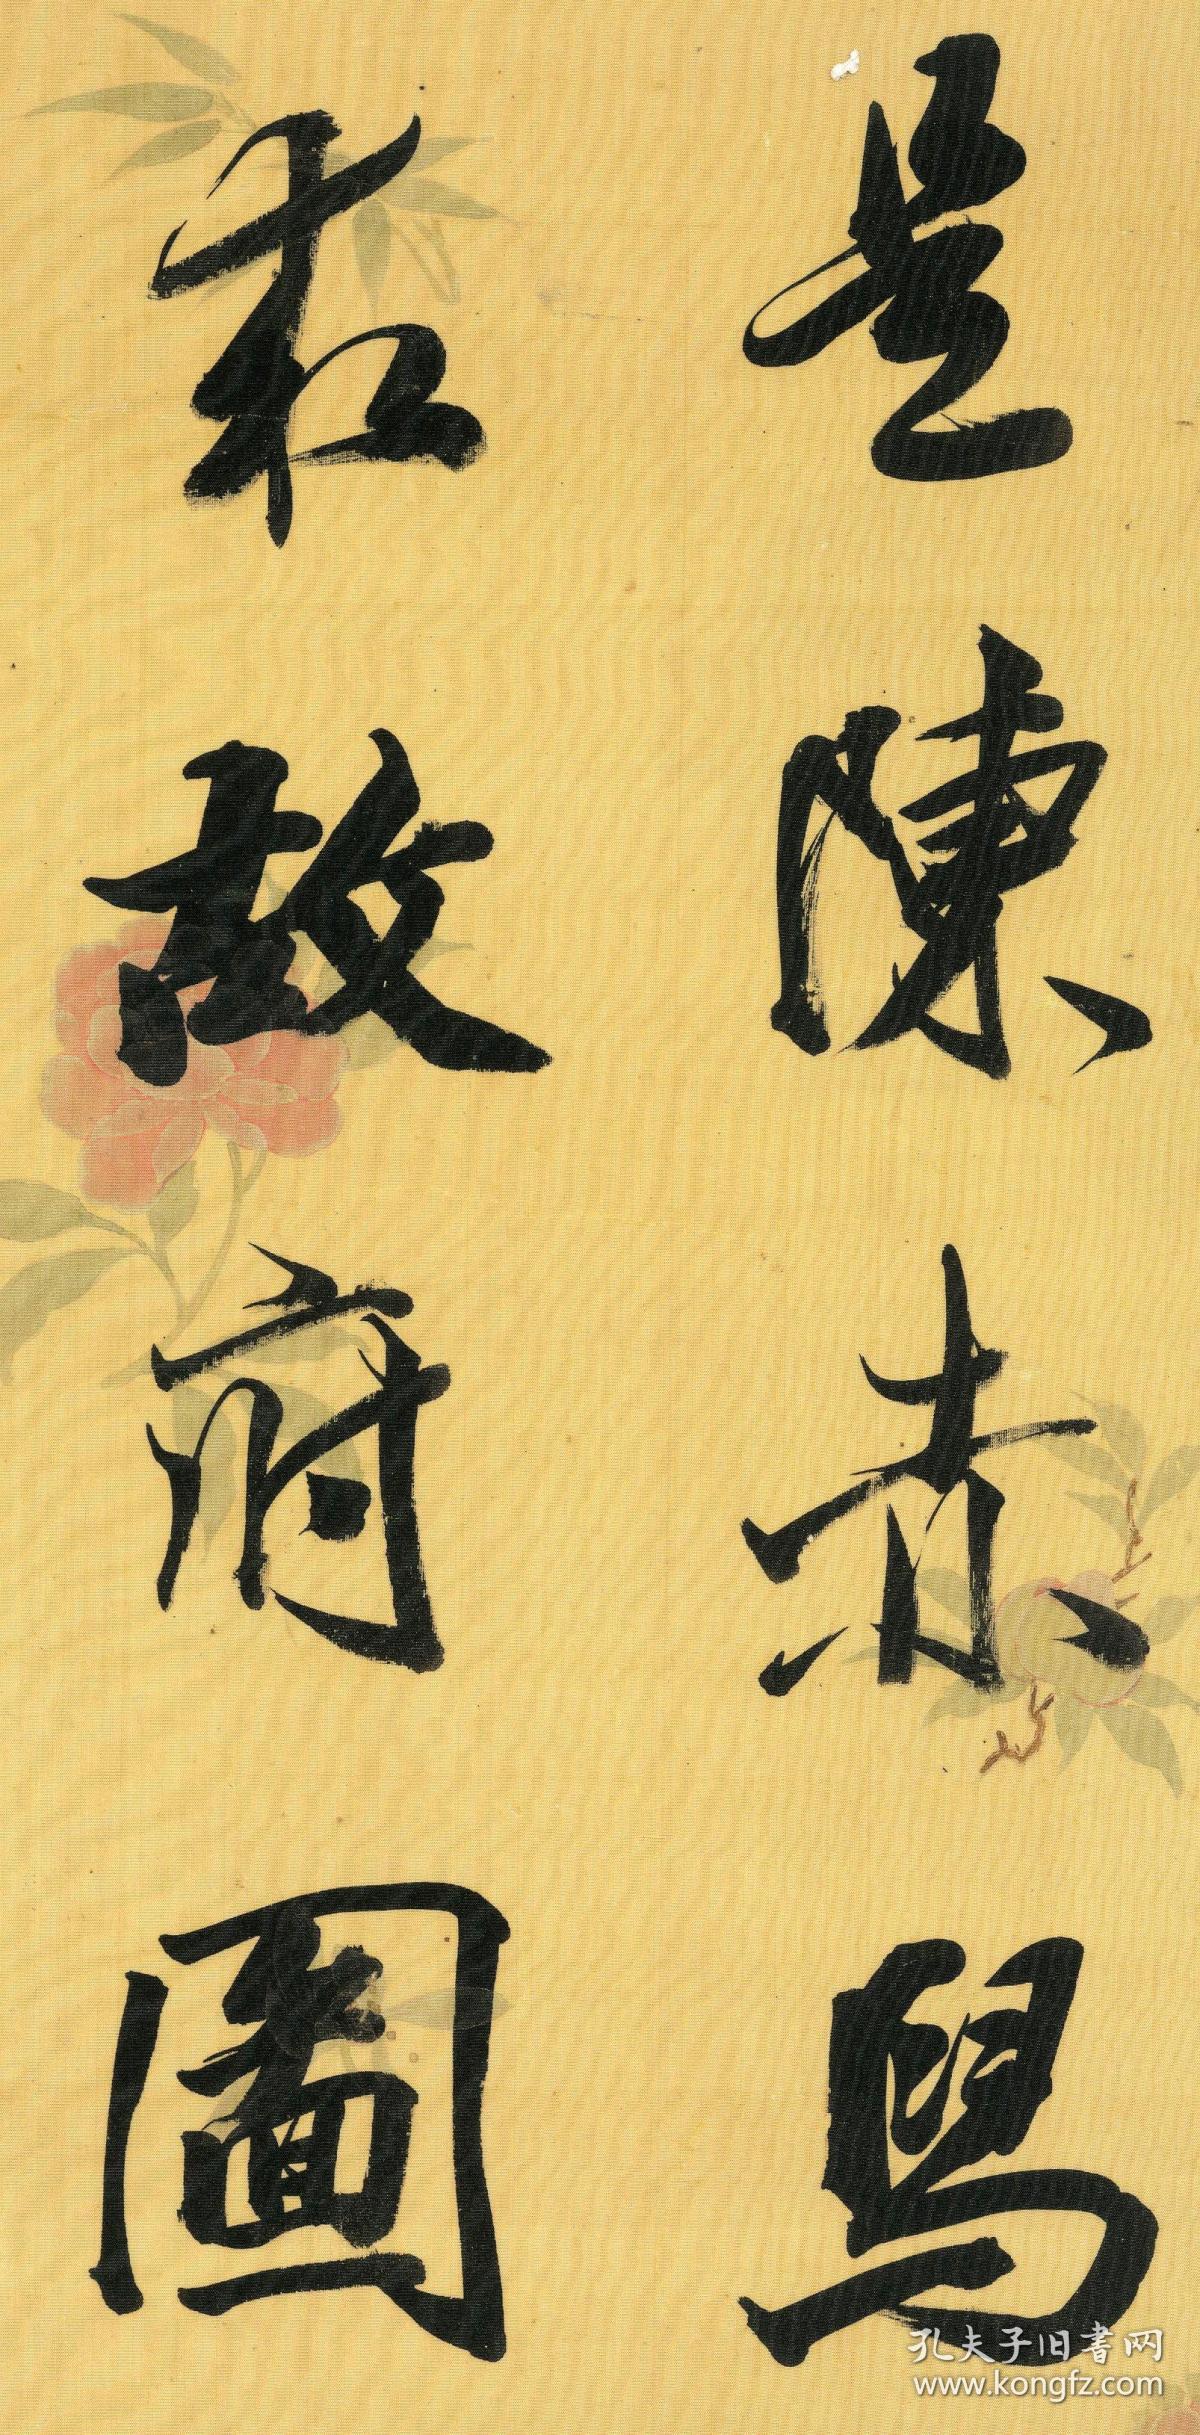 是陳赤舄
故府圖
孔夫子旧書网
www.kongfz.com